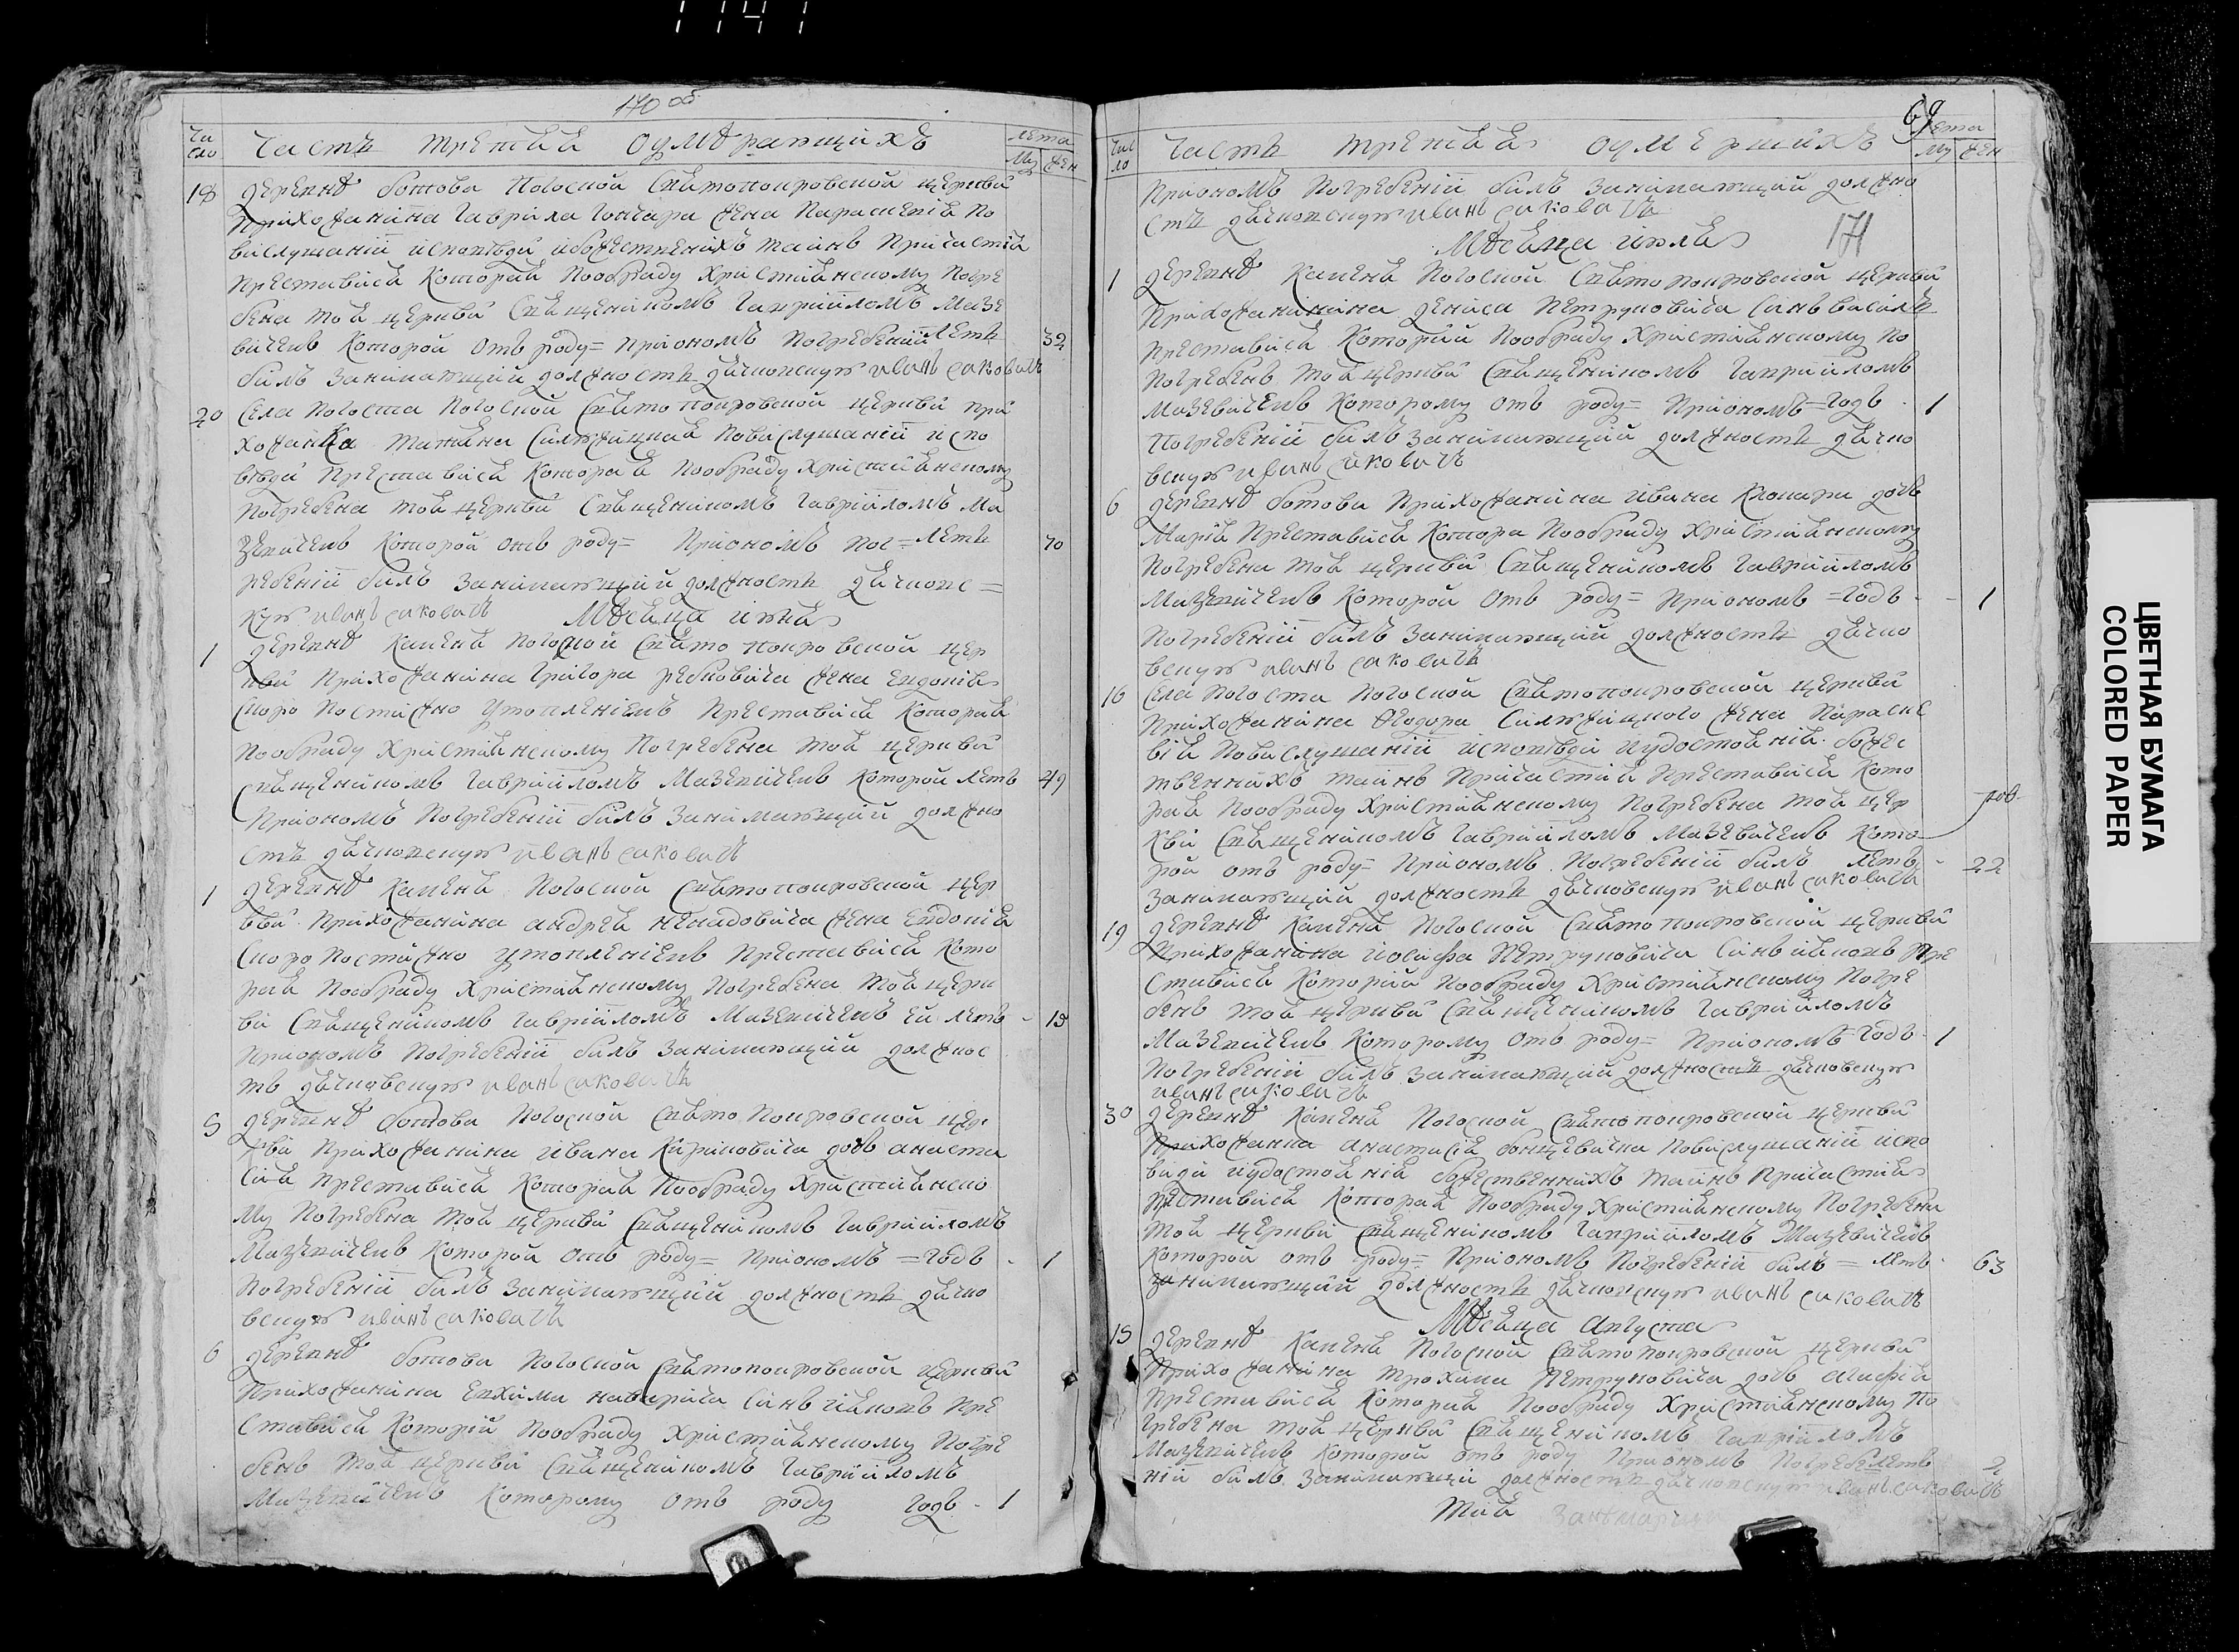 170 об
Чи
сло
Часть третья о умерающихъ
лета
Му жен
18 деревнѣ Ботова Погоской Свято покровской церквы
Прихожанина Гаврила Гончара жена Параскевія по
выслушаніи исповѣды и божественыхъ таинъ Причастія
Преставися Которая пообряду Християнскому погре
бена той церквы Священыкомъ Гавріиломъ Мазе
вичемъ Которой отъ роду= приономъ Погребеніи летъ 32
былъ занимающий должность дячковскую иванъ саковичъ
20 Села Погоста Погоской Свято покровской церквы при
хожанка повыслушаніи испо
вѣды Преставися Которая пообряду Християнскому
Погребена той церквы Священикомъ Гавріиломъ Ма
зевичемъ Которой отъ роду= Приономъ пог= летъ 70
ребеніи былъ занимающий должность дячковс=
кую иванъ саковичъ Мѣсяца июня
1 деревнѣ Каменя Погоской Свято покровской цер
квы Прихожанина Григора жена Евдокия
скоро постижно утопленіемъ Преставися Которая
пообряду Християнскому Погребена той церквы
Священикомъ Гавріиломъ Мазевичемъ Которой летъ 49
Приономъ Погребеніи былъ занимающий должно
сть дячковскую иванъ саковичъ
1 деревнѣ Каменя Погоской Святопокровской цер
квы Прихожанина андрея ненадовича жена Евдокія
Скоро Постижно утопленіемъ Преставися Кото
рая Пообряду Християнскому Погребена той церк
вы Священикомъ Гавріиломъ Мазевичемъ ей летъ - 15
Приономъ Погребеніи былъ занимающий должнос
ть дячковскую иванъ саковичъ
5 деревнѣ Ботова Погоской Свято Покровской цер
квы Прихожанина ивана Кириловича дочь анаста
сия Преставися Которая Пообряду Християнско
му Погребена той церквы Священикомъ Гавріиломъ
Мазевичемъ Которой отъ роду= Приономъ =годъ - 1
Погребеніи былъ занимающий должность дячко
вскую иванъ саковичъ
6 деревнѣ Ботова Погоской Святопокровской церквы
Прихожанина Евхима сынъ иаковъ Пре
ставися Которій Пообряду Християнскому Погре
бенъ той церквы Священикомъ Гавріиломъ
Мазевичемъ Которому отъ роду годъ - 1
69
Чис
ло
Часть третья о умершихъ
лета
Му жен
Приономъ Погребеніи былъ занимающий должно
сть дячковскую иванъ саковичъ
Мѣсяца июля 171
1 деревнѣ Каменя Погоской Святопокровской церквы
Прихожанина дениса Петруковича сынъ василь
Преставися Которий Пообряду Християнскому по
погребенъ той церквы Священикомъ Гавріиломъ
Мазевичемъ Которому отъ роду= Приономъ=годъ - 1
Погребеніи былъ занимающий должность дячко
вскую иванъ саковичъ
6 деревнѣ Ботова Прихожанина ивана дочь
Марія Преставися Котора Пообряду Християнскому
Погребена той церквы Священикомъ Гавріиломъ
Мазевичемъ Которой отъ роду= Приономъ =годъ - - 1
Погребеніи былъ занимающий должность дячко
вскую иванъ саковичъ
16 Села Погоста Погоской Святопокровской церквы
Прихожанина Ѳеодора жена Параске
вія повыслушаніи исповѣды иудостоянія божес
твенныхъ таинъ Причастия Преставися Кото
рая пообряду Християнскому Погребена той цер
квы Священикомъ Гавріиломъ Мазевичемъ Кото
рой отъ роду= Приономъ Погребеніи былъ летъ - 22
занимающий должность дячковскую иванъ саковичъ
19 деревнѣ Каменя Погоской Святопокровской церквы
Прихожанина иосифа Петруковича сынъ иаковъ Пре
ставися Которий Пообряду Християнскому Погре
бенъ той церквы Священикомъ Гавріиломъ
Мазевичемъ Которому отъ роду= Приономъ=годъ - 1
Погребеніи былъ занимающий должность дячковскую
иванъ саковичъ
30 деревнѣ Каменя Погоской Святопокровской церквы
Прихожанка анастасія повыслушаніи испо
выды иудостоянія божественныхъ таинъ Причастия
Преставися Которая Пообряду Християнскому Погребена
той церквы Священикомъ Гавріиломъ Мазевичемъ
Которой отъ роду= Приономъ Погребеніи былъ = летъ - 63
занимающий должность дячковскую иванъ саковичъ
Мѣсяца августа
15 деревнѣ Каменя Погоской Святопокровской церквы
Прихожанина трохима Петруковича дочь агафія
Преставися Которая Пообряду Християнскому по
гребена той церквы Священикомъ Гавріиломъ
Мазевичемъ Которой отъ роду Приономъ Погребе летъ 2
ніи былъ занимающи должность дячковскую иванъ саковичъ
1141
ЦВЕТНАЯ БУМАГА
COLORED PAPER